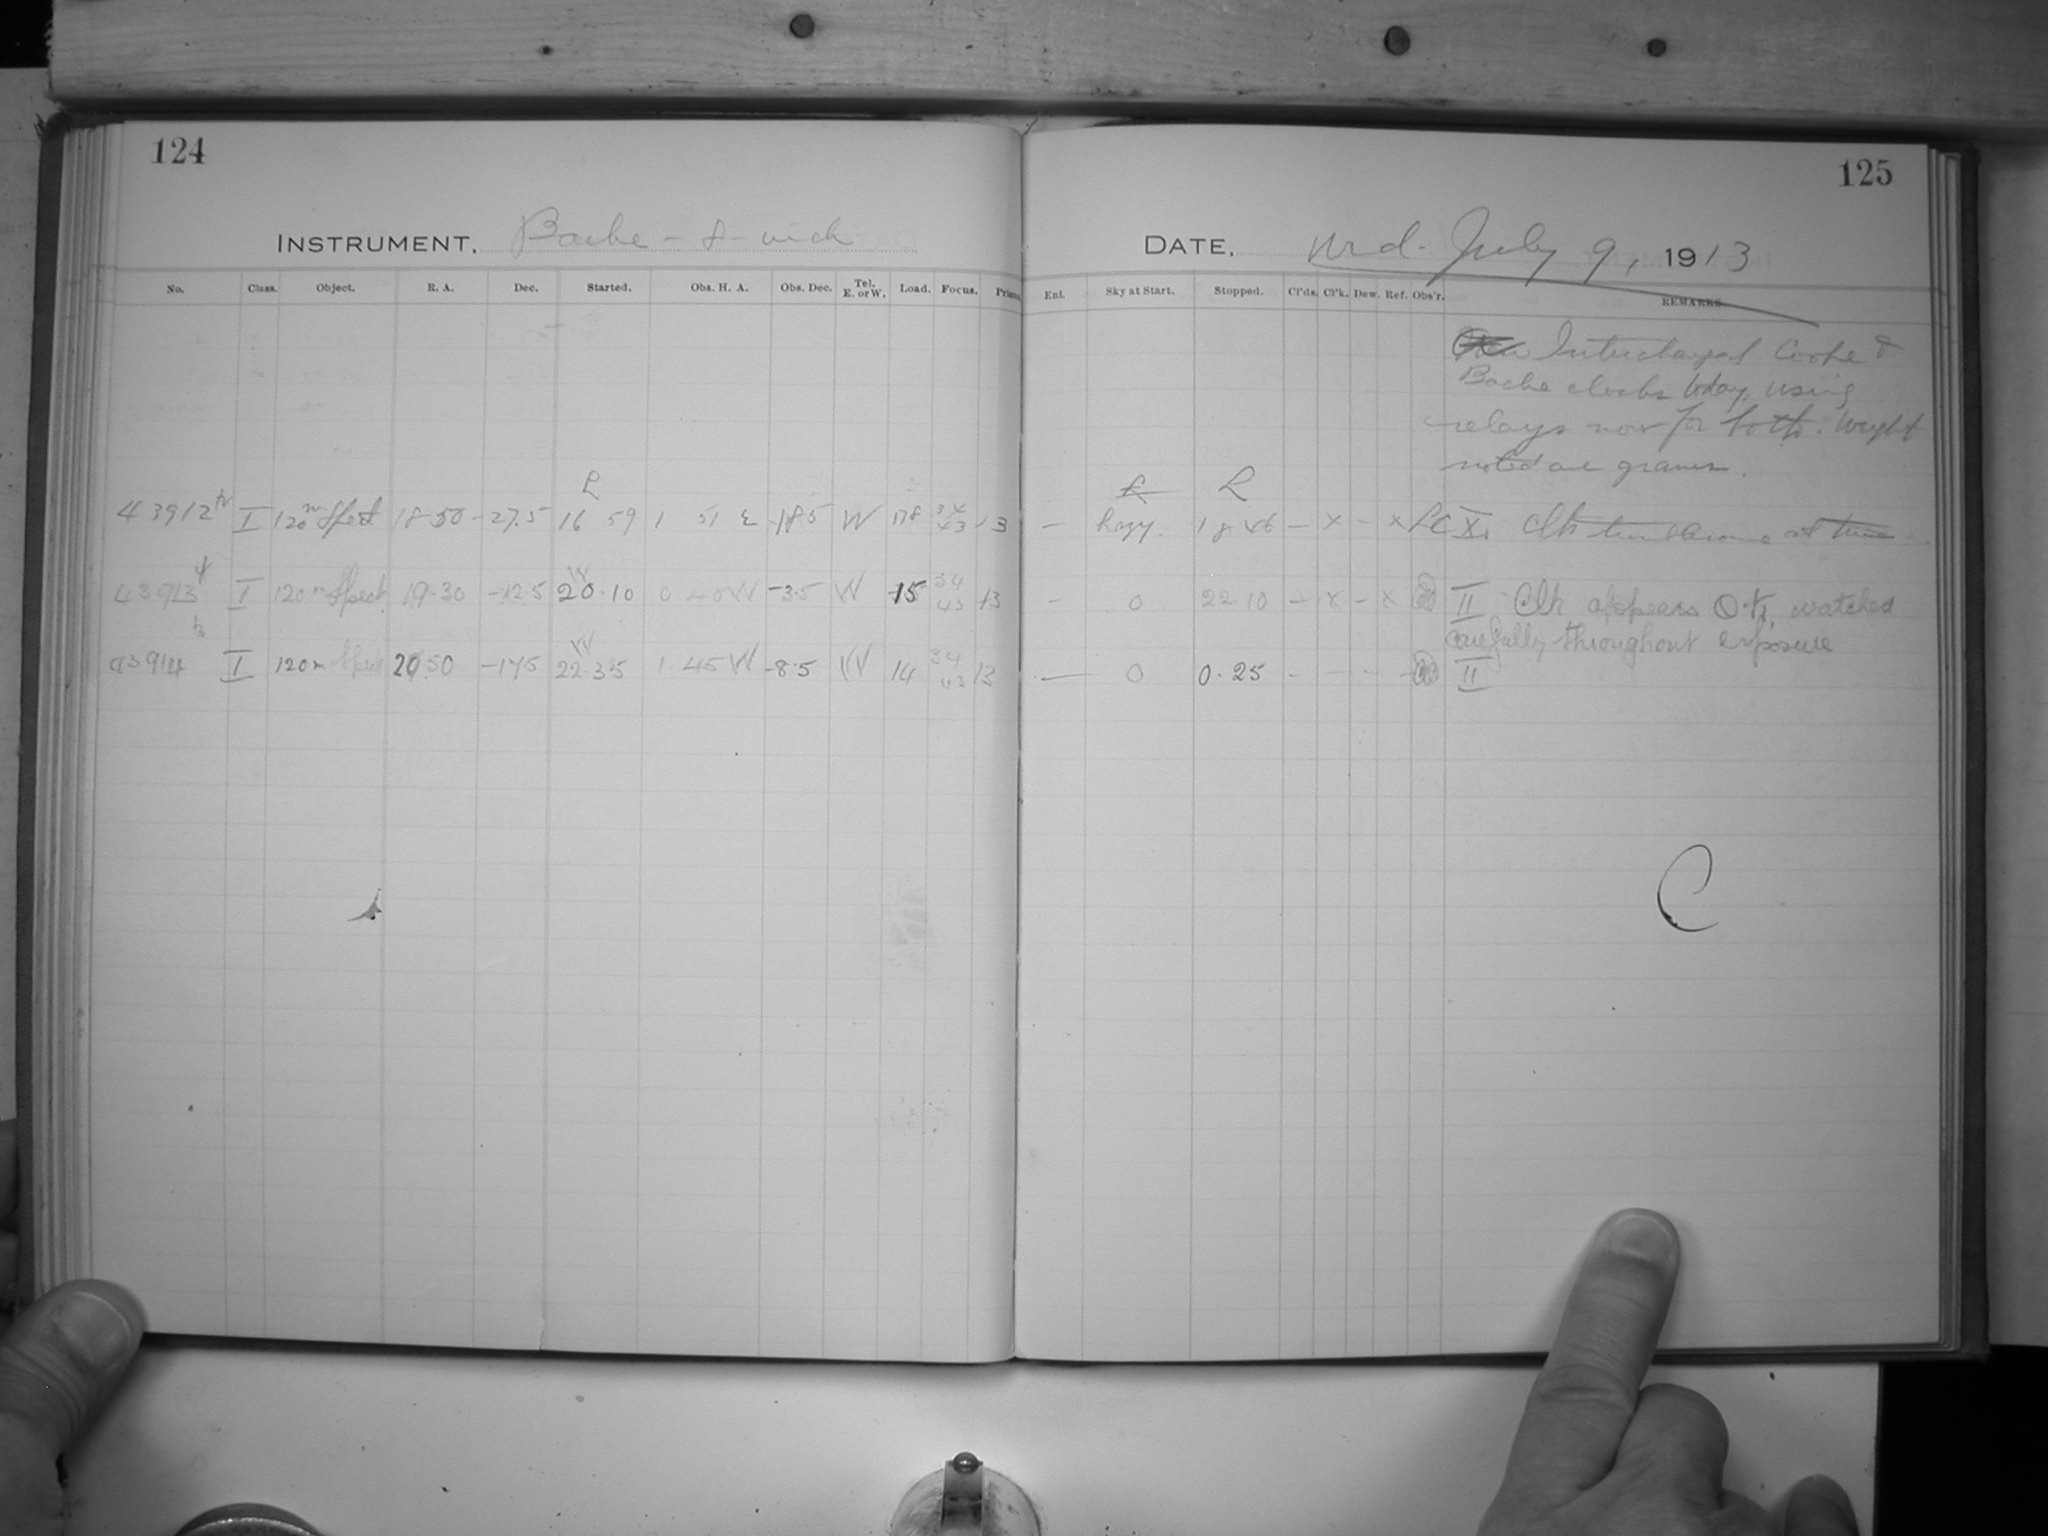 124
125
INSTRUMENT, Bache - 8 - inch
DATE, Wed. July 9, 1913
No. Class. Object. R. A. Dec. Started. Obs. H. A. Obs. Dec. Tel. E. or W. Load. Focus. Prism. Enl. Sky at Start. Stopped. Cl'ds. Cl'k. Dew. Ref. Obs'r. REMARKS.
Interchanged Cooke &
Bache clocks today, using
relays now for both. Weight
noted are grams.
L L
43912 I 120m Spect 18 50 -27.5 16 59 1 51 E -18.5 W 178 34 43 13 - hazy. 18 46 - x - x LC XI. Clk
43913 I 120m Spect 19.30 -12.5 20.10 0 40 W -3.5 W 15 34 43 13 - 0 22 10 - x - x II Clk appears O.K. watched
W carefully throughout exposure
43914 I 120m Spect 20 50 -17.5 22.35 1 45 W -8.5 W 14 34 43 13 - 0 0.25 - - - - II
C